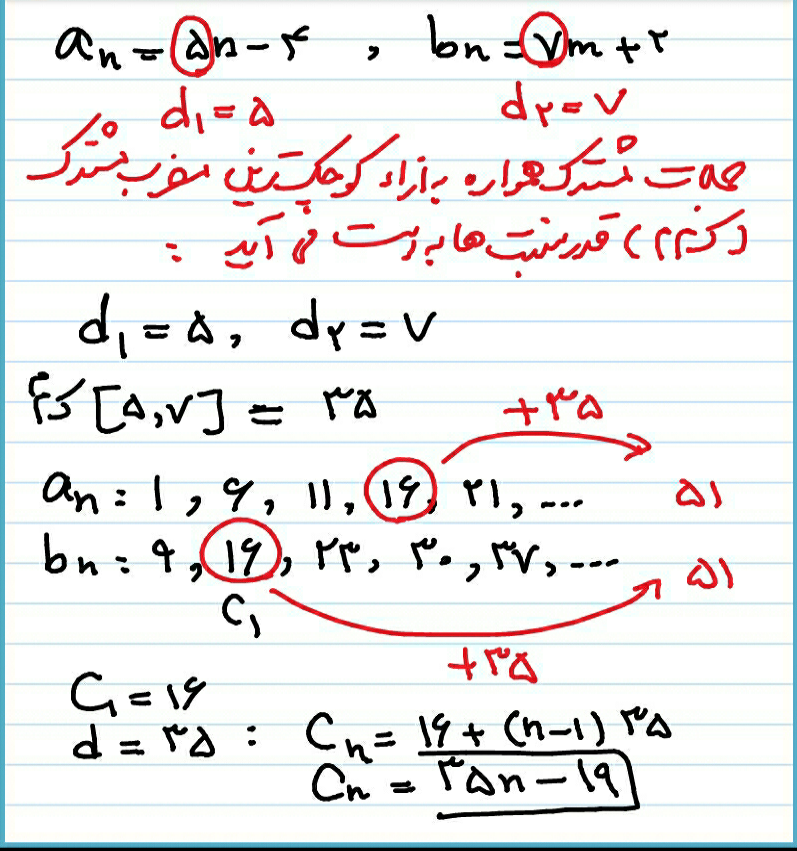 aₙ = ۵n - ۴ , bn = ۷m + ۲
d₁ = ۵ d۲ = ۷
جملات مشترک همواره به ازاء کوچکترین مضرب مشترک
(ک م م) قدر نسبت ها بدست می آید :
d₁ = ۵, d۲ = ۷
ک م م [۵,۷] = ۳۵
+۳۵
aₙ : ۱, ۶, ۱۱, ۱۶, ۲۱, ... ۵۱
bn : ۹, ۱۶, ۲۳, ۳۰, ۳۷, ... ۵۱
C₁
+۳۵
C₁ = ۱۶
d = ۳۵ : Cn = ۱۶ + (n-۱) ۳۵
Cn = ۳۵n - ۱۹